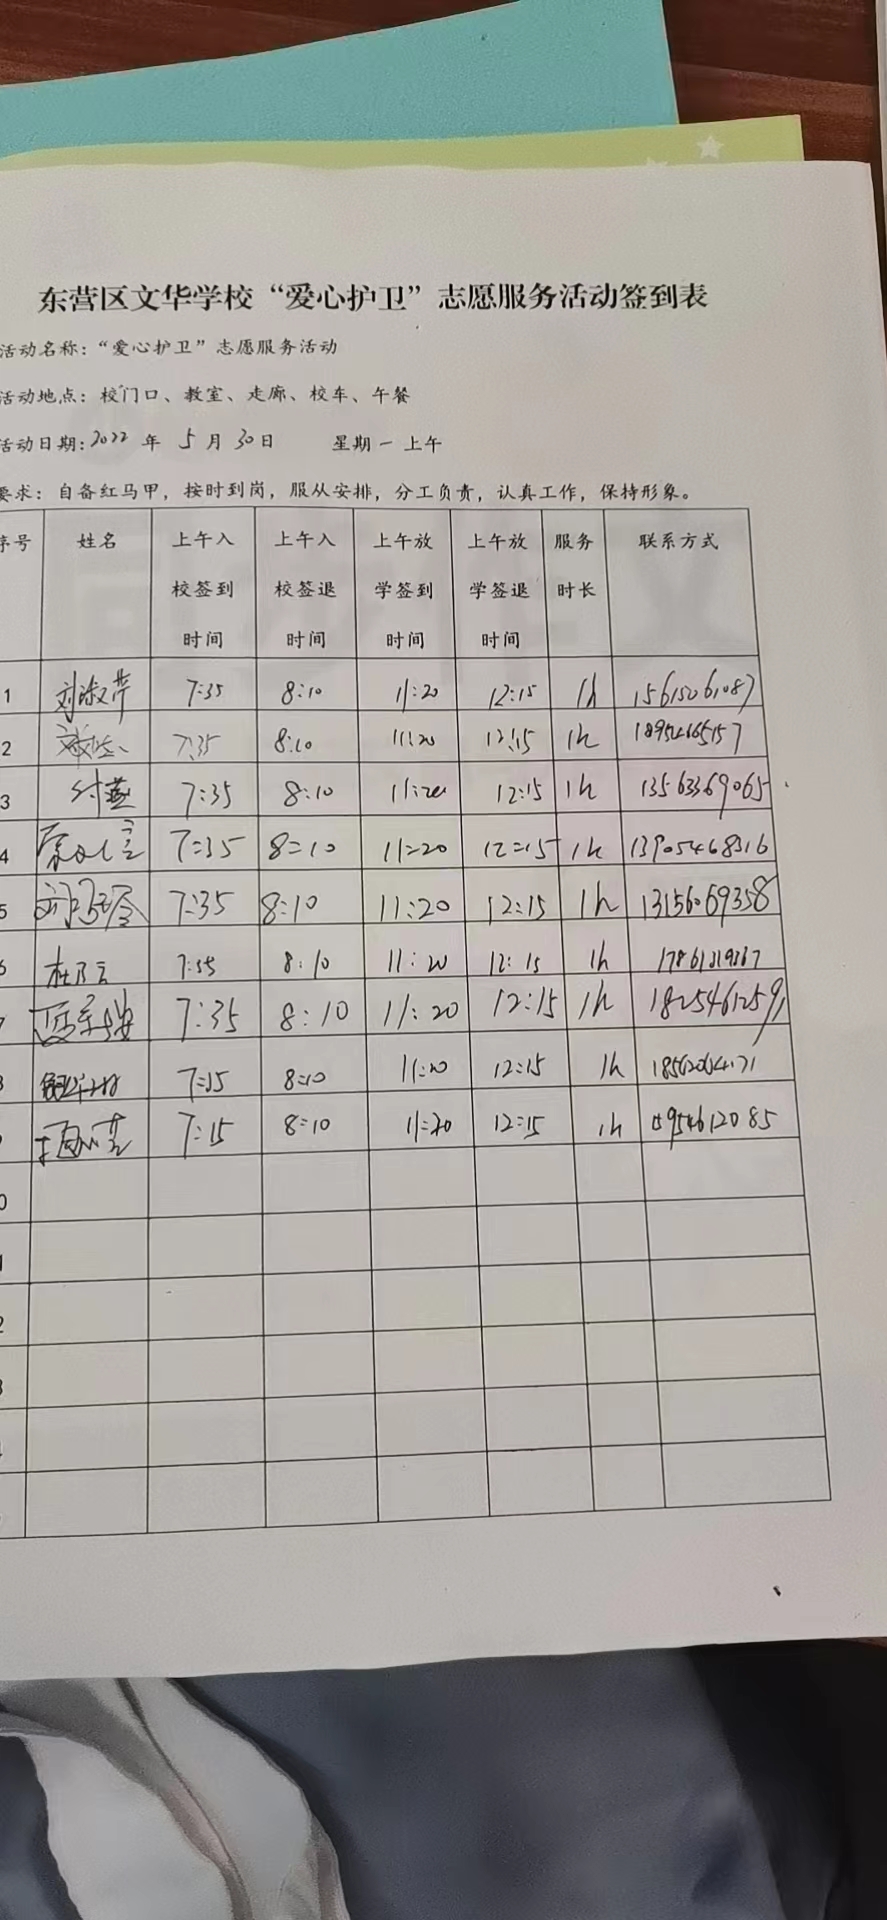 东营区文华学校“爱心护卫”志愿服务活动签到表
活动名称：“爱心护卫”志愿服务活动
活动地点：校门口、教室、走廊、校车、午餐
活动日期：2022 年 5 月 30 日 星期一 上午
要求：自备红马甲，按时到岗，服从安排，分工负责，认真工作，保持形象。
序号 姓名 上午入校签到时间 上午入校签退时间 上午放学签到时间 上午放学签退时间 服务时长 联系方式
1 刘淑萍 7:35 8:10 11:20 12:15 1h 15615061087
2 7:35 8:10 11:20 12:15 1h 18954665157
3 付燕 7:35 8:10 11:20 12:15 1h 13563369065
4 7:35 8:10 11:20 12:15 1h 13905468316
5 7:35 8:10 11:20 12:15 1h 13156069358
6 7:35 8:10 11:20 12:15 1h 17861319367
7 7:35 8:10 11:20 12:15 1h
8 7:15 8:10 11:20 12:15 1h
9 7:15 8:10 11:20 12:15 1h
0
1
2
3